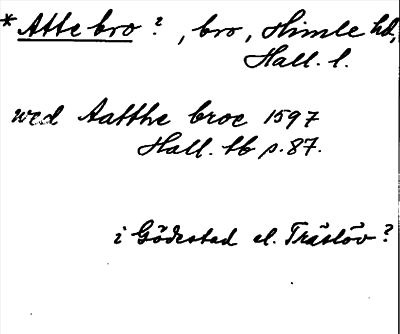 *Atte bro ?, bro, Himle hd,
Hall. l.
wed Aatthe broe 1597
Hall. tb p. 87.
i Gödestad el. Träslöv?